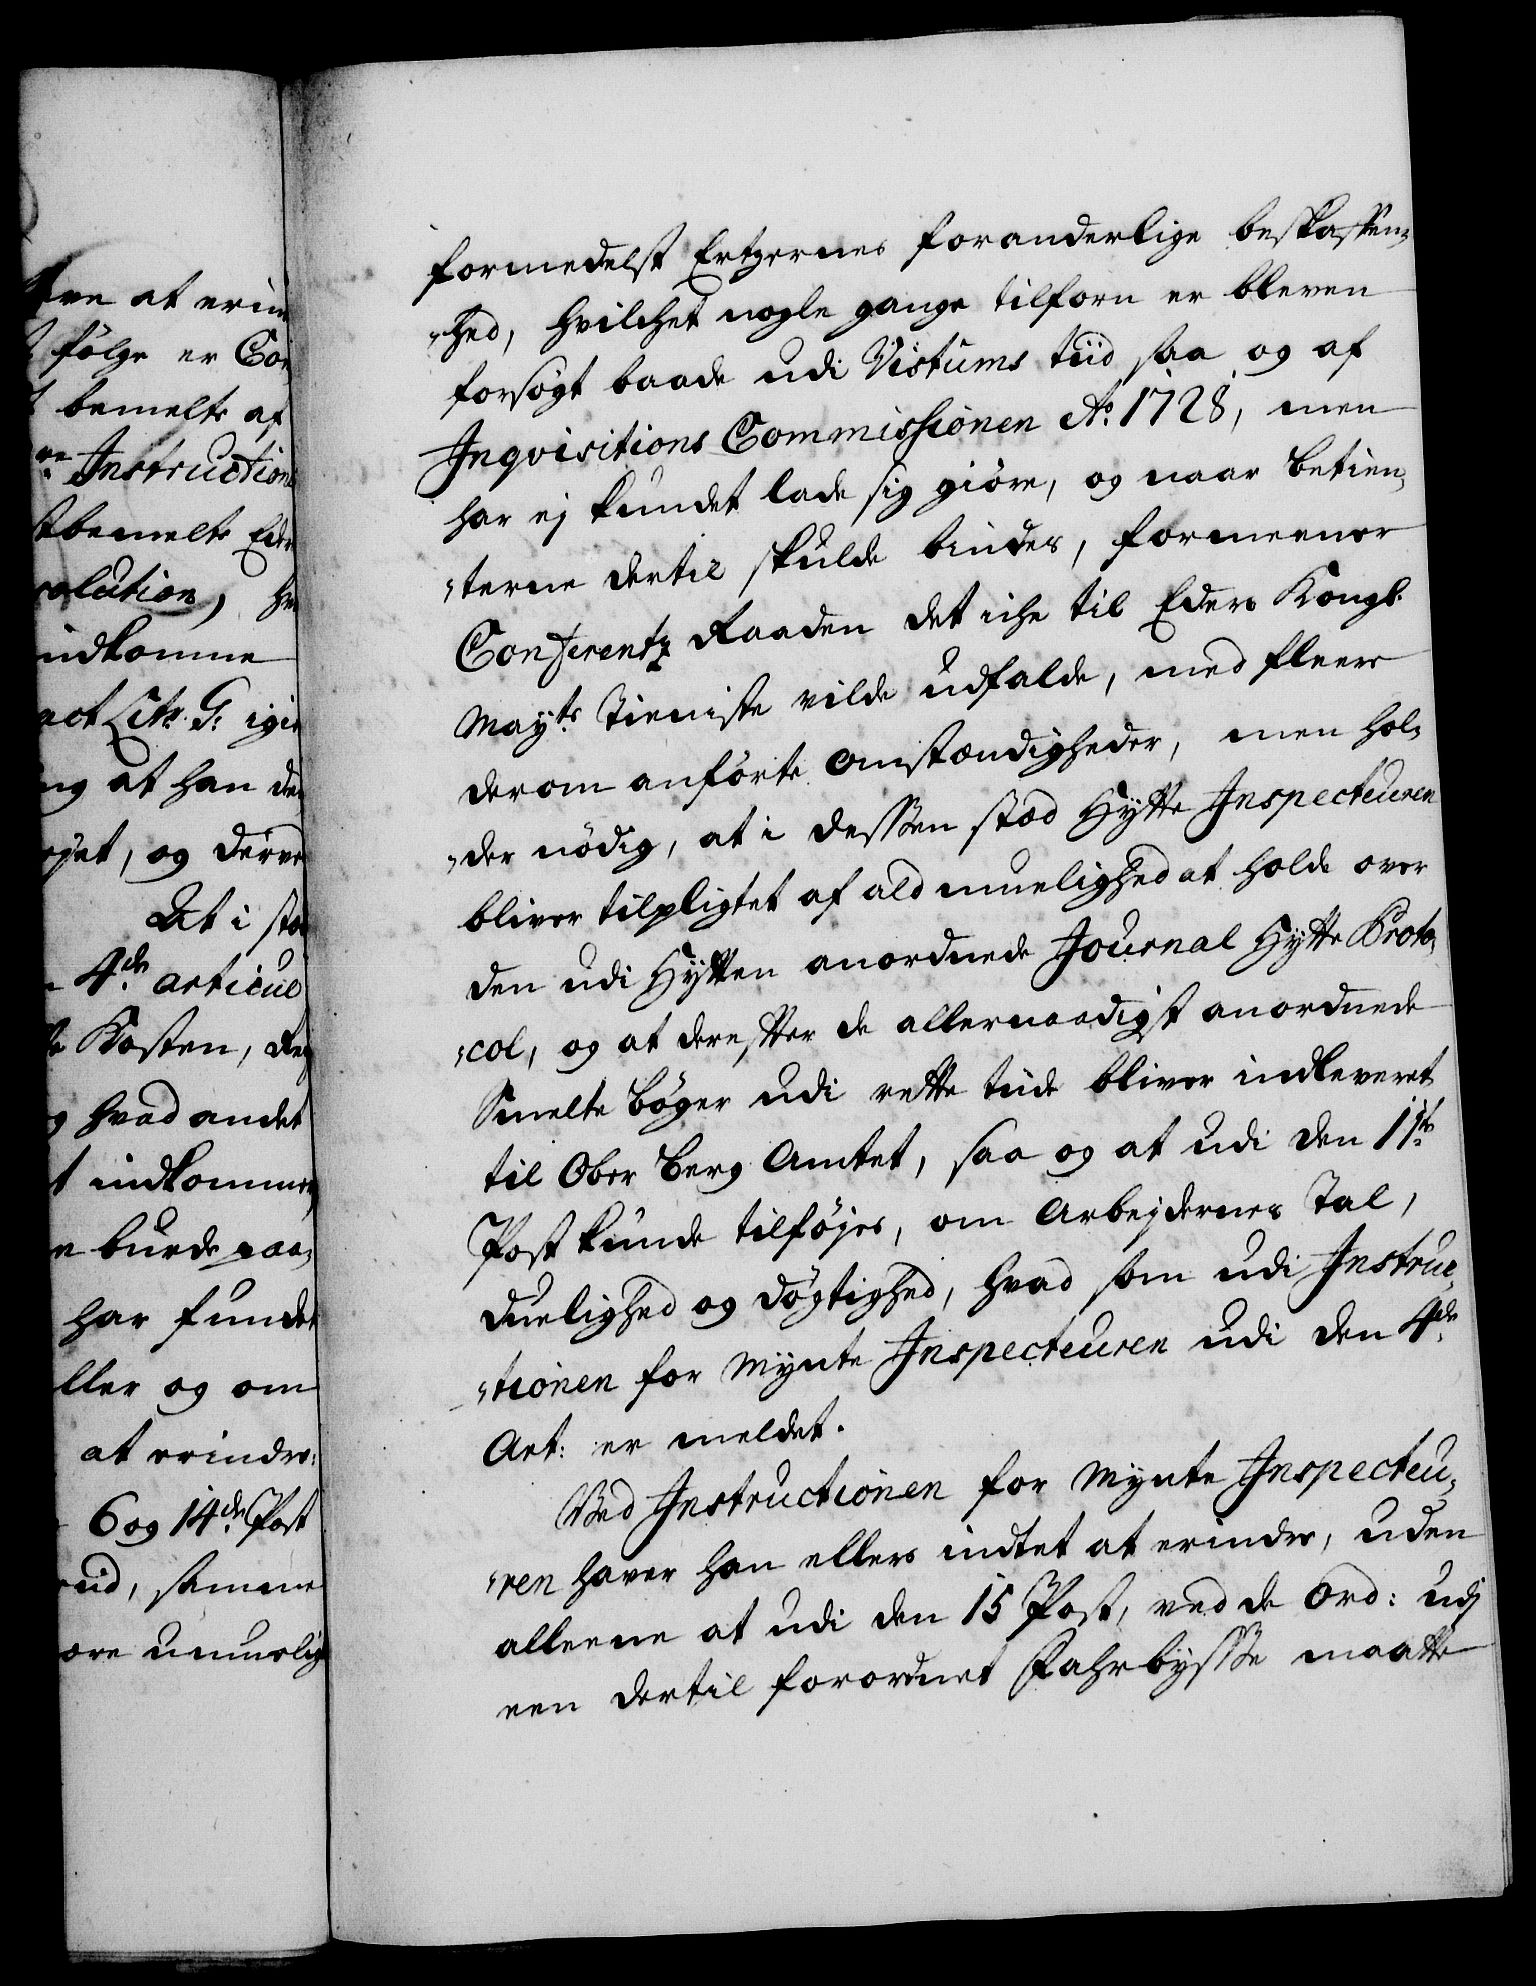 tre at erin
følge er Con
bemelte af
Instruction
stbemelte Eder
solution, hv
indkomme
act Litr. G: igie
ng at han de
øjet, og derve
At i stæ
4de articul
Kosten, Reg
hvad andet
indkommer
burde paa,
har fundet
ller og om
at erindre:
6 og 14de Post
tiid, samme
ære umuelig
formedelst Ertzernes foranderlige beskaffen,,
,,hed, hvilchet nogle gange tilforn er bleven
forsøgt baade udi Vistums tiid saa og af
Inqvisitions Commissionen Ao. 1728, men
har ej kundet lade sig giøre, og naar betien,,
,,terne dertil skulde bindes, formeener
Conferentz Raaden det iche til Eders Kongl.
Mayts. Tieniste vilde udfalde, med fleere
derom anførte omstændigheder, men hol,,
,,der nødig, at i dessen stæd Hytte Inspecteuren
bliver tilpligtet af ald muelighed at holde over
den udi Hytten anordnede Journal Hytte Proto,,
,,col, og at derefter de allernaadigst anordnede
Smelte bøger udi rette tiide bliver indleveret
til Ober Berg Amtet, saa og at udi den 11te
Post kunde tilføjes, om Arbejdernes Tal,
duelighed og døgtighed, hvad som udi Instruc,,
,,tionen for Mynte Inspecteuren udi den 4de
Art: er meldet.
Ved Instructionen for Mynte Inspecteu,,
,,ren haver han ellers indtet at erindre, uden
alleene at udi den 15 Post, ved de Ord: udj
een dertil forordnet Fahrbysse maatte